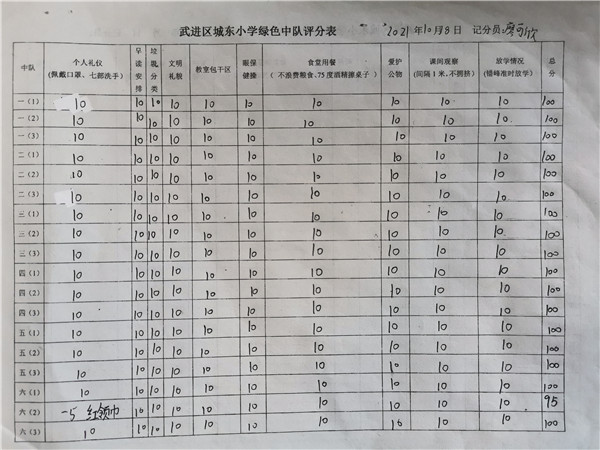 武进区城东小学绿色中队评分表 2021年10月8日 记分员:
中队 个人礼仪(佩戴口罩、七部洗手) 早读安排 垃圾分类 文明礼貌 教室包干区 眼保健操 食堂用餐(不浪费粮食、75度酒精擦桌子) 爱护公物 课间观察(间隔1米,不拥挤) 放学情况(错峰准时放学) 总分
一(1) 10 10 10 10 10 10 10 10 10 10 100
一(2) 10 10 10 10 10 10 10 10 10 10 100
一(3) 10 10 10 10 10 10 10 10 10 10 100
二(1) 10 10 10 10 10 10 10 10 10 10 100
二(2) 10 10 10 10 10 10 10 10 10 10 100
二(3) 10 10 10 10 10 10 10 10 10 10 100
三(1) 10 10 10 10 10 10 10 10 10 10 100
三(2) 10 10 10 10 10 10 10 10 10 10 100
三(3) 10 10 10 10 10 10 10 10 10 10 100
四(1) 10 10 10 10 10 10 10 10 10 10 100
四(2) 10 10 10 10 10 10 10 10 10 10 100
四(3) 10 10 10 10 10 10 10 10 10 10 100
五(1) 10 10 10 10 10 10 10 10 10 10 100
五(2) 10 10 10 10 10 10 10 10 10 10 100
五(3) 10 10 10 10 10 10 10 10 10 10 100
六(1) 10 10 10 10 10 10 10 10 10 10 100
六(2) -5 红领巾 10 10 10 10 10 10 10 10 10 95
六(3) 10 10 10 10 10 10 10 10 10 10 100